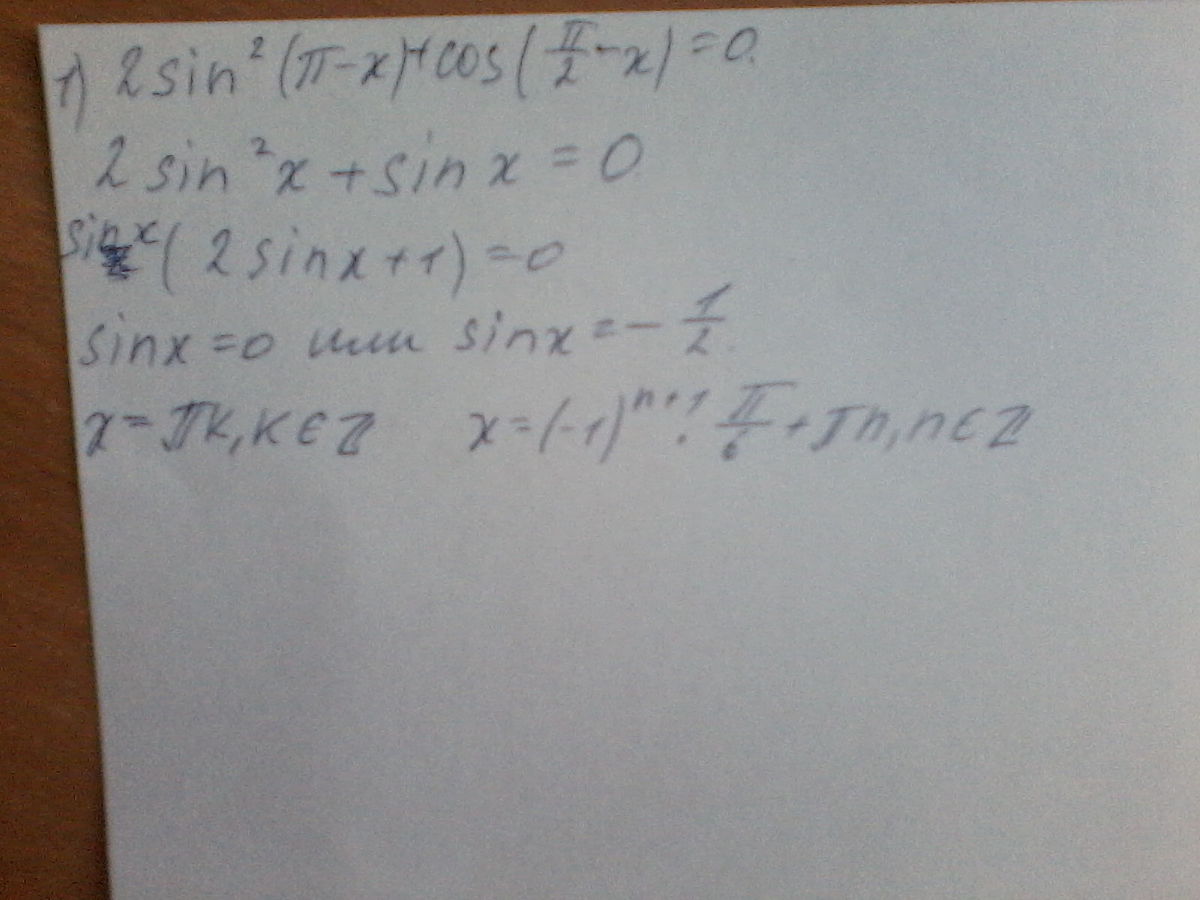 1) 2sin²(π-x)+cos(π/2-x)=0.
2sin²x+sinx=0
sinx(2sinx+1)=0
sinx=0 или sinx=-1/2.
x=πk,k∈Z x=(-1)ⁿ⁺¹·π/6+πn,n∈Z